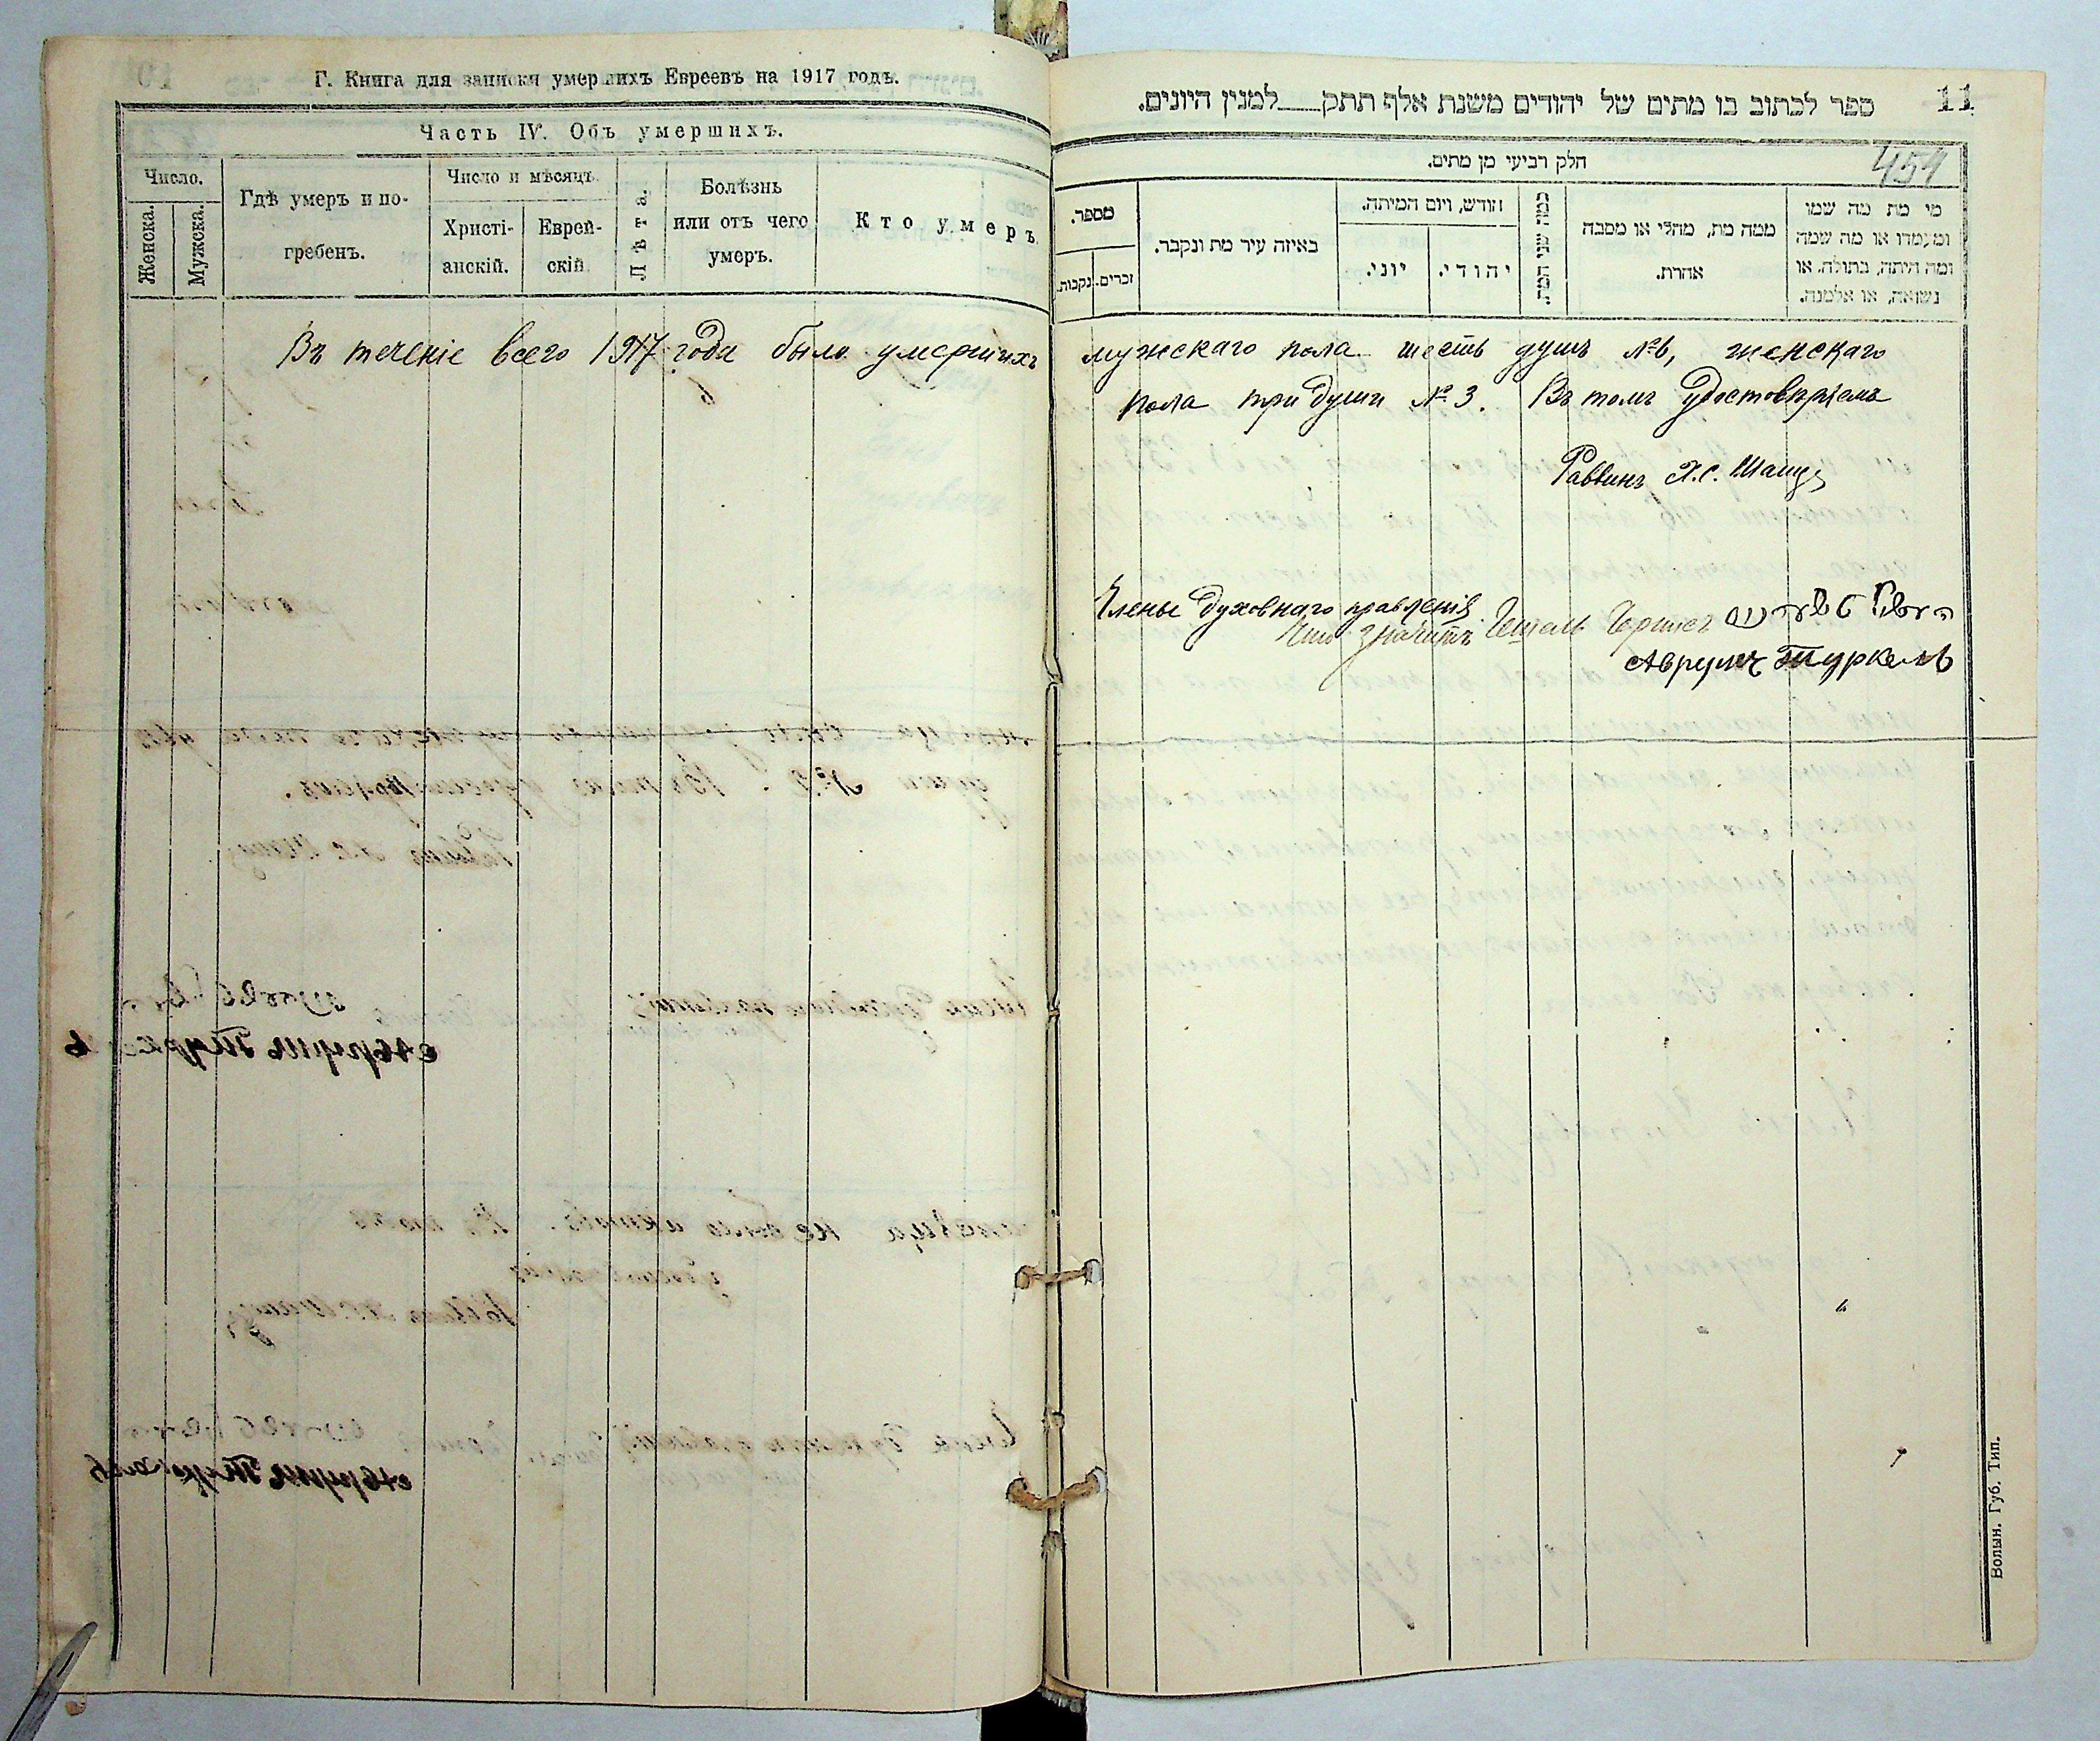 Г. Книга для записки умершихъ Евреевъ на 1917 годъ.
Часть IV. Объ умершихъ.
Число.
Женска.
Мужска.
Гдѣ умеръ и по-
гребенъ.
Число и мѣсяцъ.
Христі-
анскій.
Еврей-
скій.
Лѣта.
Болѣзнь
или отъ чего
умеръ.
Кто умеръ.
11
ספר לכתוב בו מתים של יהודים משנת אלף תתק___למנין היונים.
454
חלק רביעי מן מתים.
מספר.
זכרים.
נקבות.
באיזה עיר מת ונקבר.
חודש, ויום המיתה.
יוני.
יהודי.
כמה שני המת.
ממה מת, מחלי או מסבה
אחרת.
מי מת מה שמו
ומעמדו או מה שמה
ומה היתה, בתולה. או
נשואה, או אלמנה.
Въ теченіе всего 1917 года было умершихъ мужскаго пола шесть душъ №6, женскаго
пола три души № 3. Въ томъ удостовѣряемъ
Раввинъ Х.С.
Члены духовнаго правленія
что значитъ
Аврумъ Туркель
Волын. Губ. Тип.